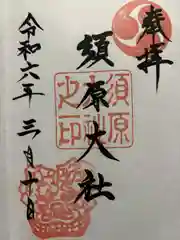 奉拝
須原大社
須原大社之印
令和六年三月十日